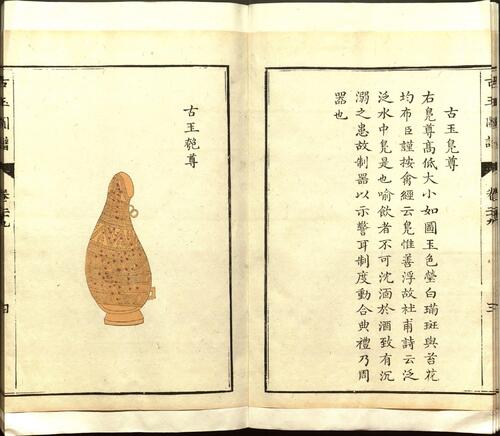 古玉鳧尊
右鳧尊高低大小如圖玉色瑩白瑞斑與苔花
均布臣謹按禽經云鳧惟善浮故杜甫詩云泛
泛水中鳧是也喻飲者不可沈湎於酒致有沉
溺之患故制器以示警耳制度動合典禮乃周
器也
古玉匏尊
古玉圖譜
卷二十九
四
古玉圖譜
三